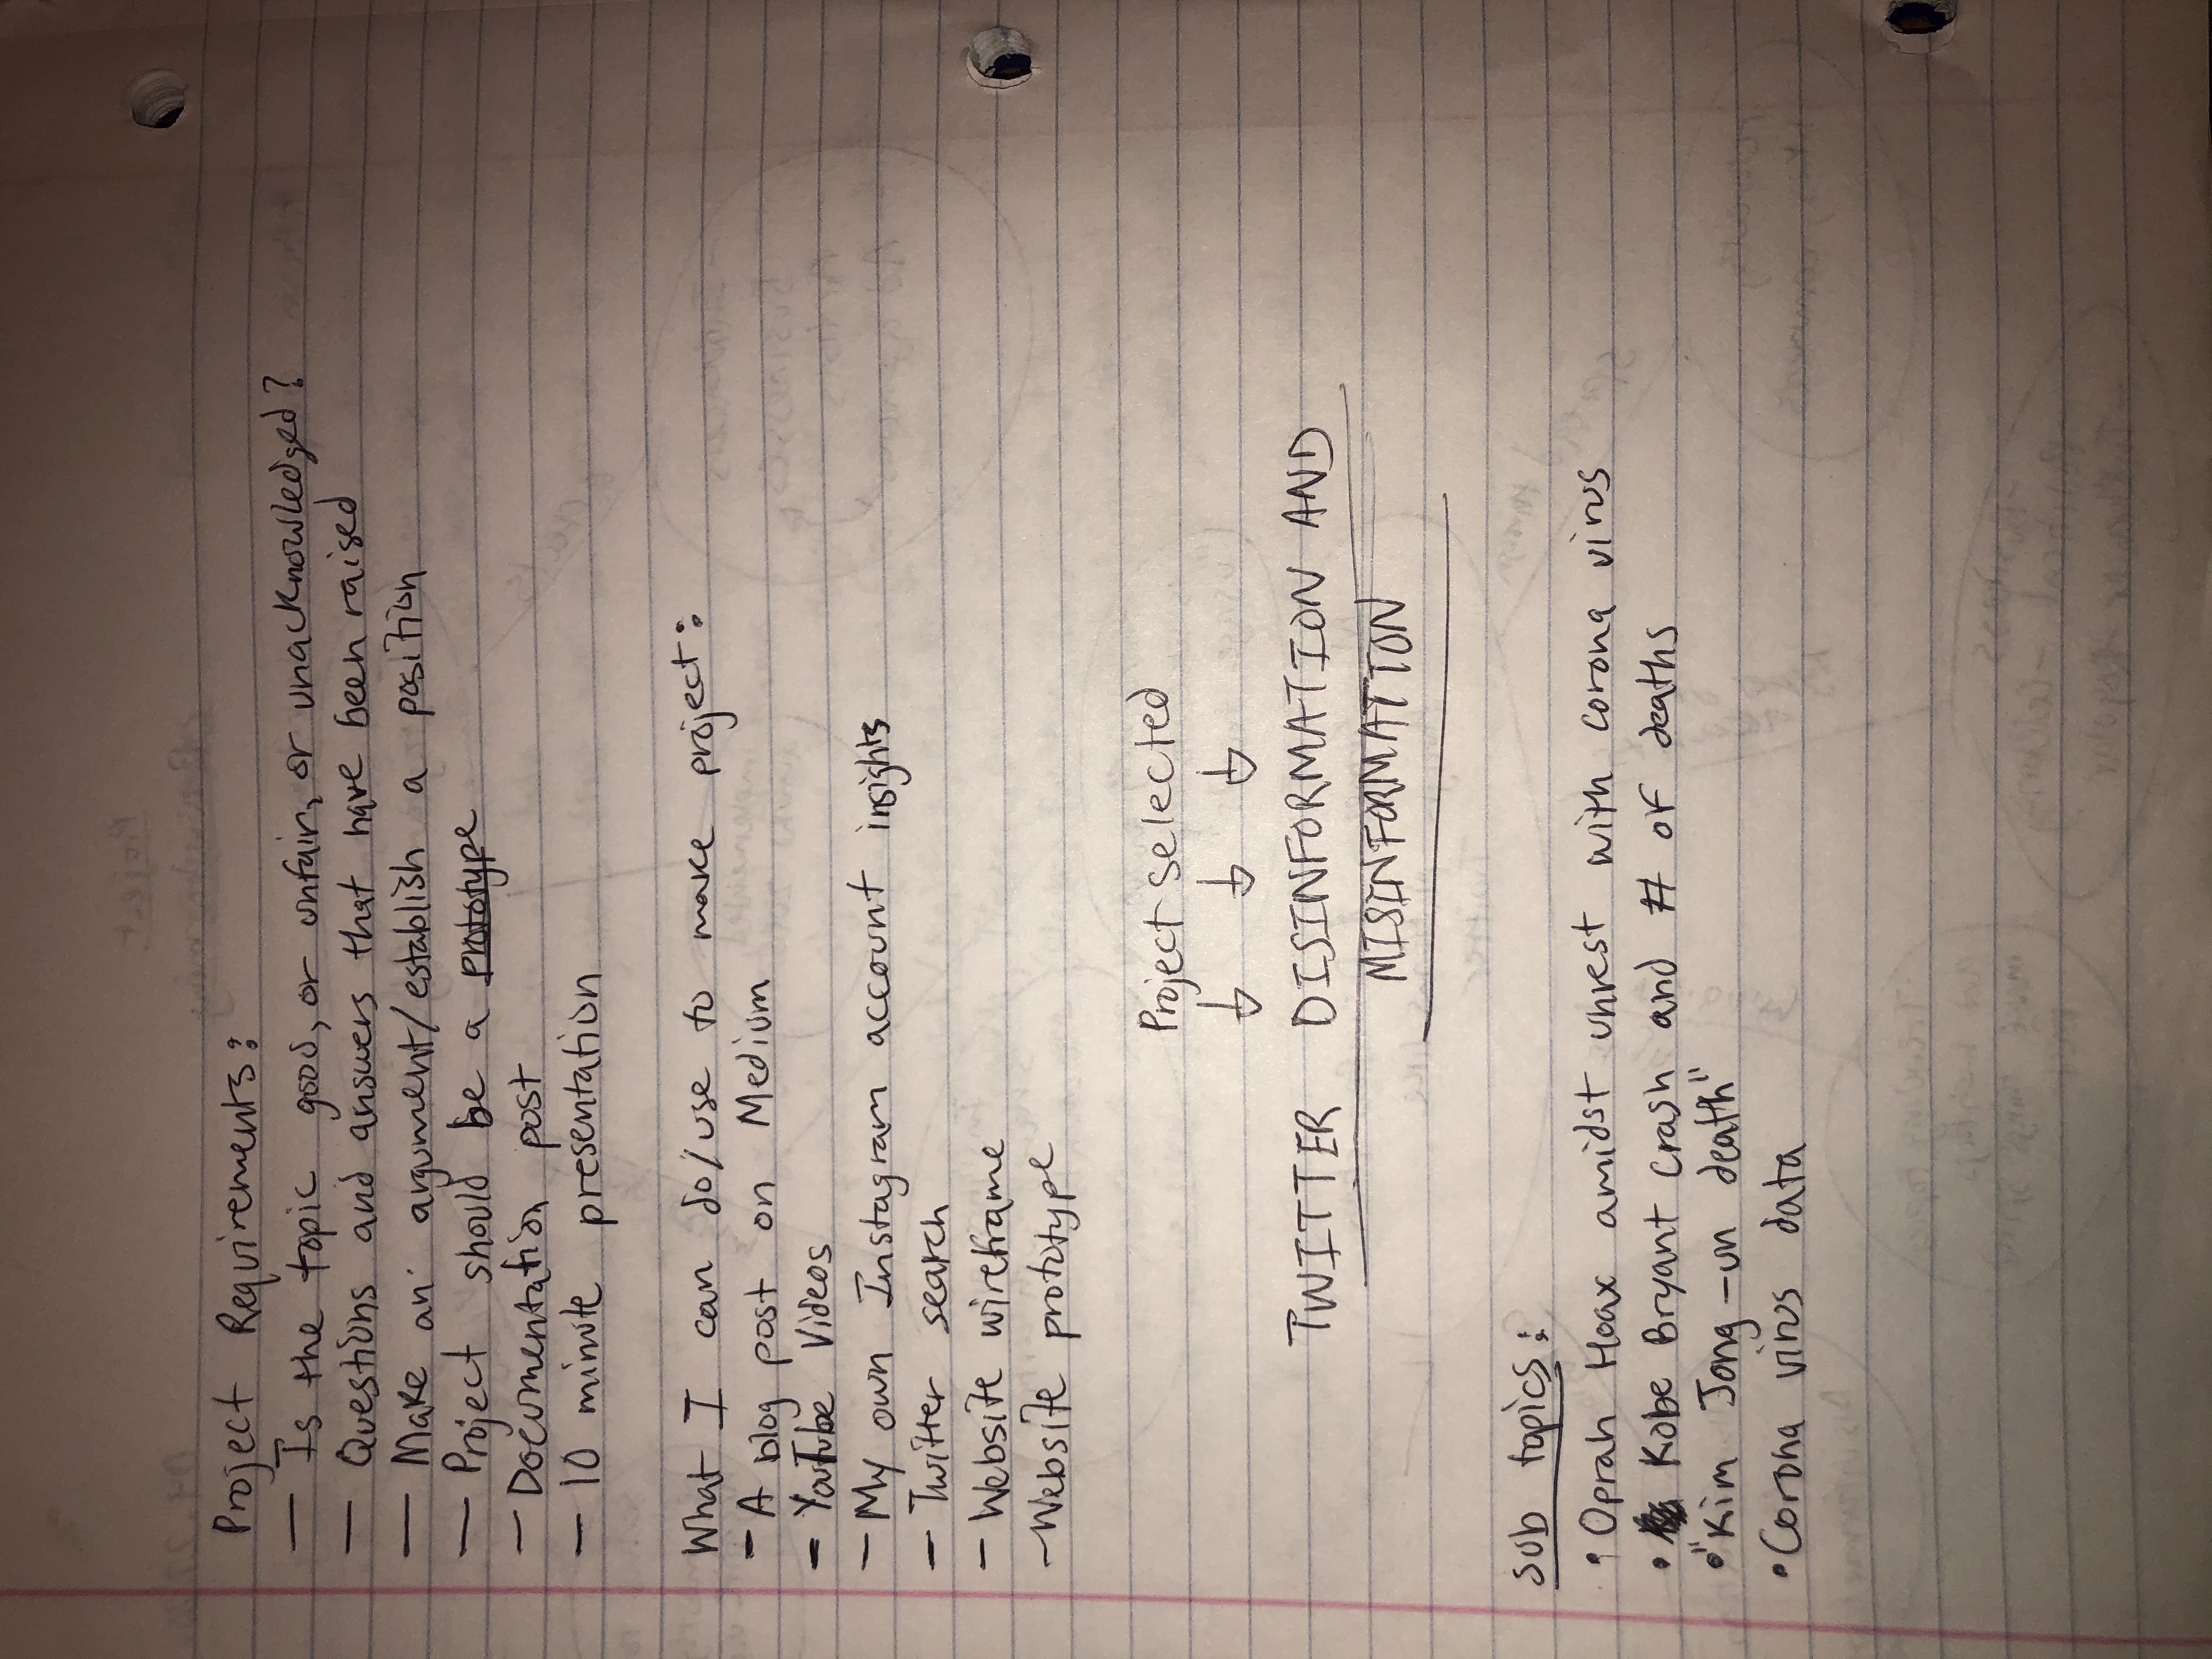 Project Requirements:
— Is the topic good, or unfair, or unacknowledged?
— Questions and answers that have been raised
— Make an argument/establish a position
— Project should be a prototype
— Documentation post
— 10 minute presentation
What I can do/use to make project:
- A blog post on Medium
- YouTube Videos
- My own Instagram account insights
- Twitter search
- Website wireframe
- Website prototype
Project selected
↓ ↓ ↓
TWITTER DISINFORMATION AND
MISINFORMATION
Sub topics:
• Oprah Hoax amidst unrest with corona virus
• Kobe Bryant crash and # of deaths
• "Kim Jong-un death"
• Corona virus data